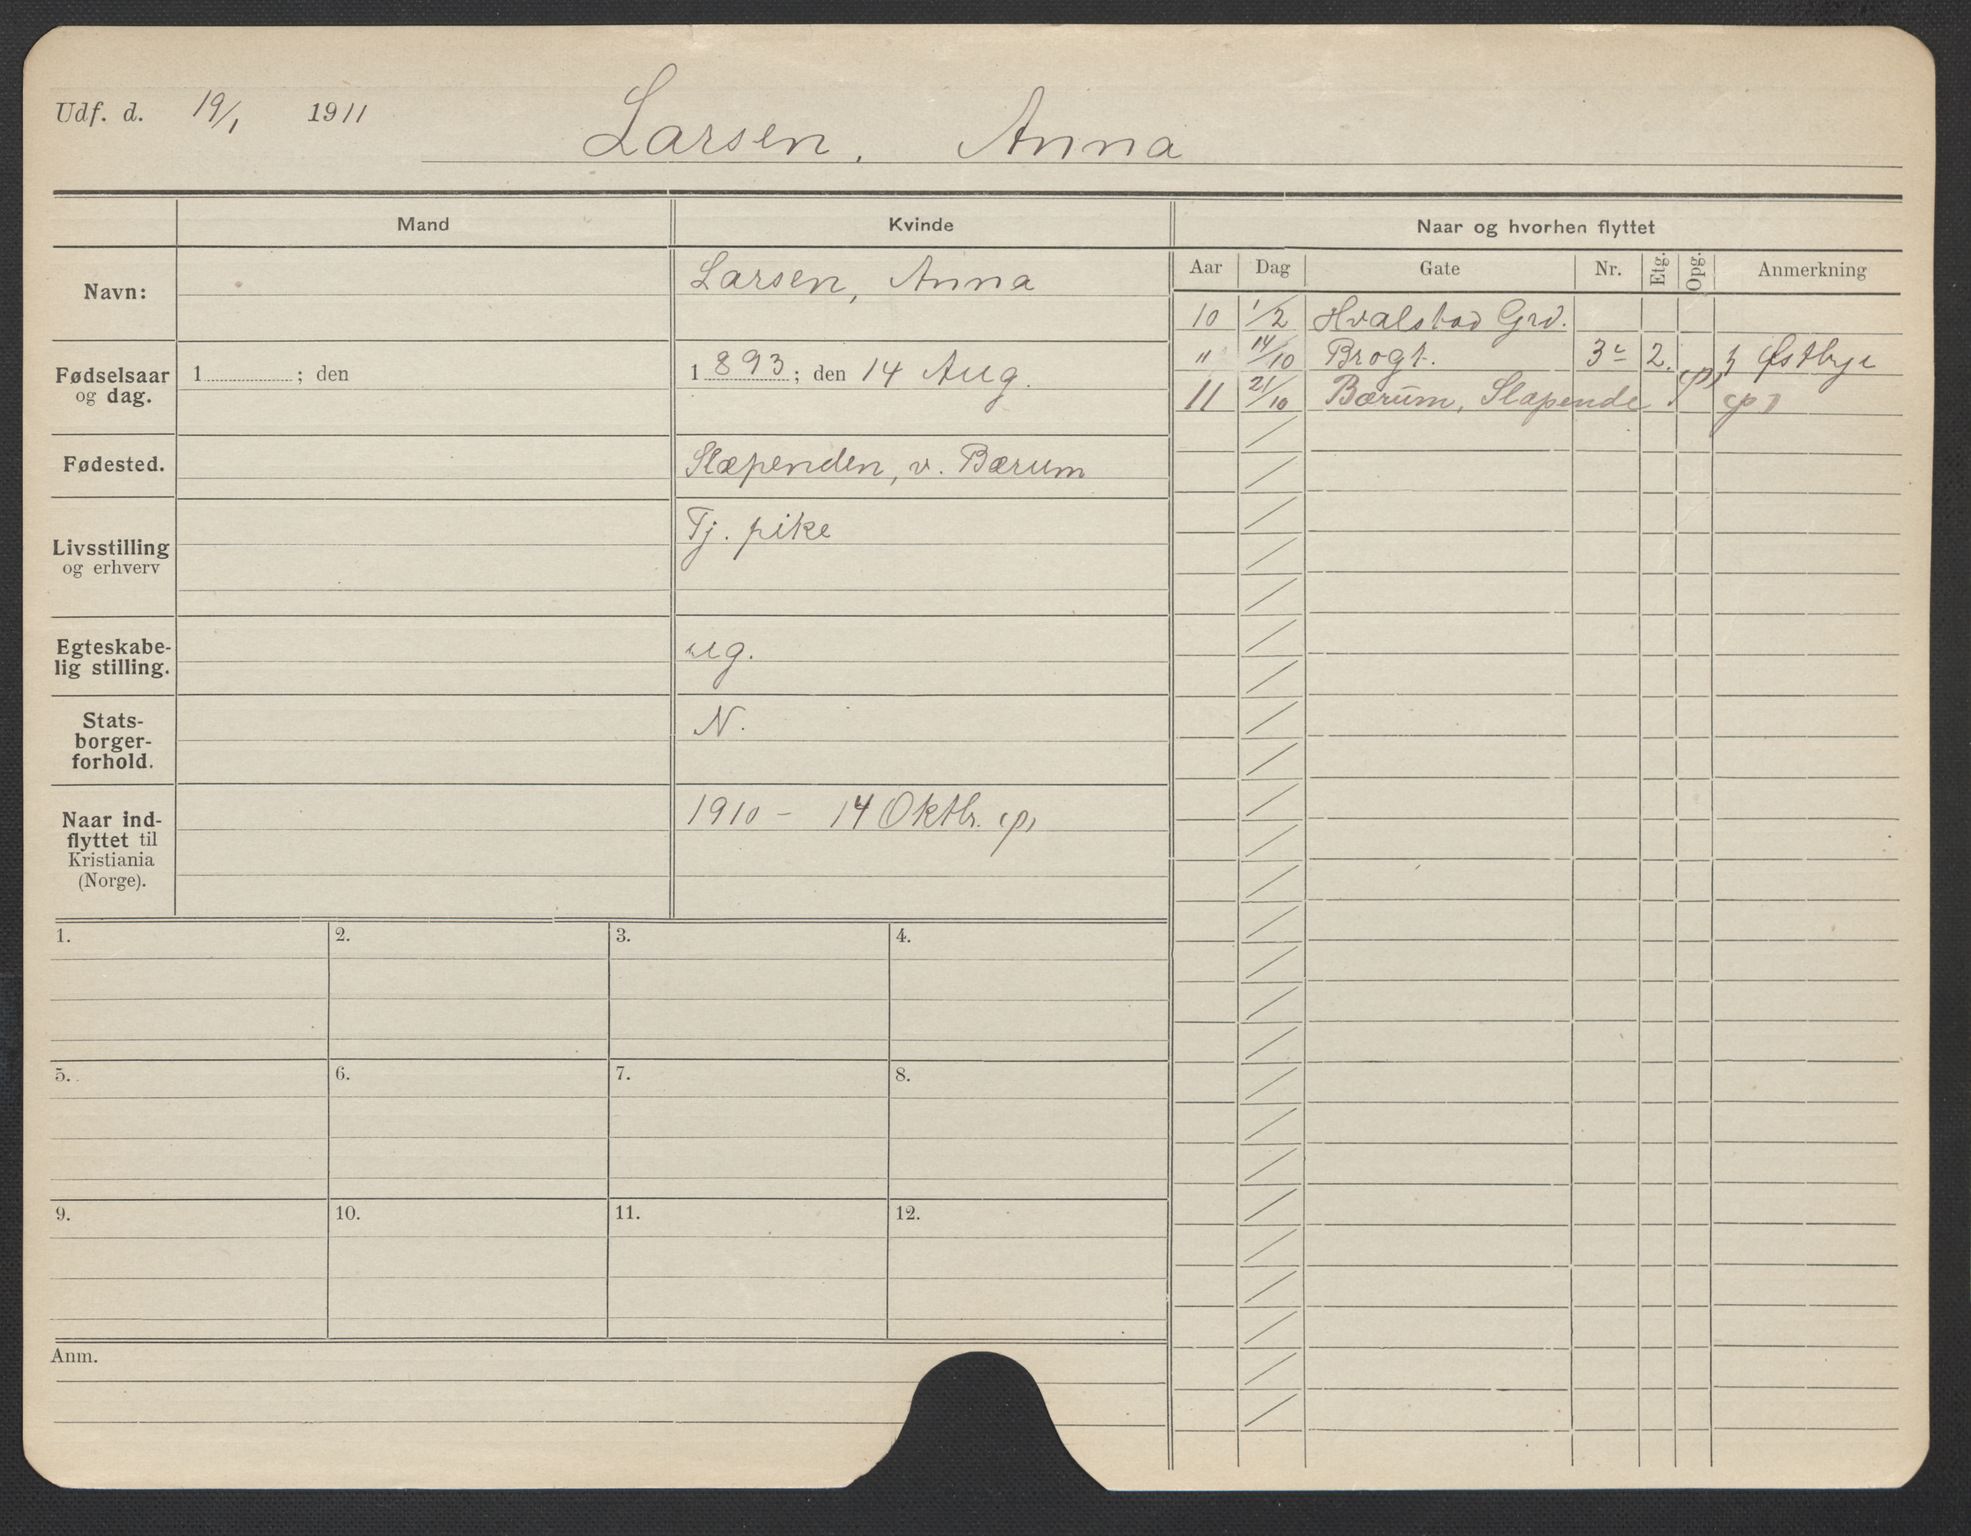 Udf. d. 19/1 1911
Larsen, Anna
Mand Kvinde Naar og hvorhen flyttet
Navn: Larsen, Anna
Fødselsaar og dag. 1 ; den 1893 ; den 14 Aug.
Fødested. Slæpenden, v. Bærum
Livsstilling og erhverv Tj. pike
Egteskabe-
lig stilling. ug.
Stats-
borger-
forhold. N.
Naar ind-
flyttet til
Kristiania
(Norge). 1910 - 14 Oktbr. (p)
Aar Dag Gate Nr. Etg. Opg. Anmerkning
10 1/2 Hvalstad Grd.
" 14/10 Brogt. 3c 2. Østbye
11 21/10 Bærum, Slæpende (p)
1. 2. 3. 4.
5. 6. 7. 8.
9. 10. 11. 12.
Anm.